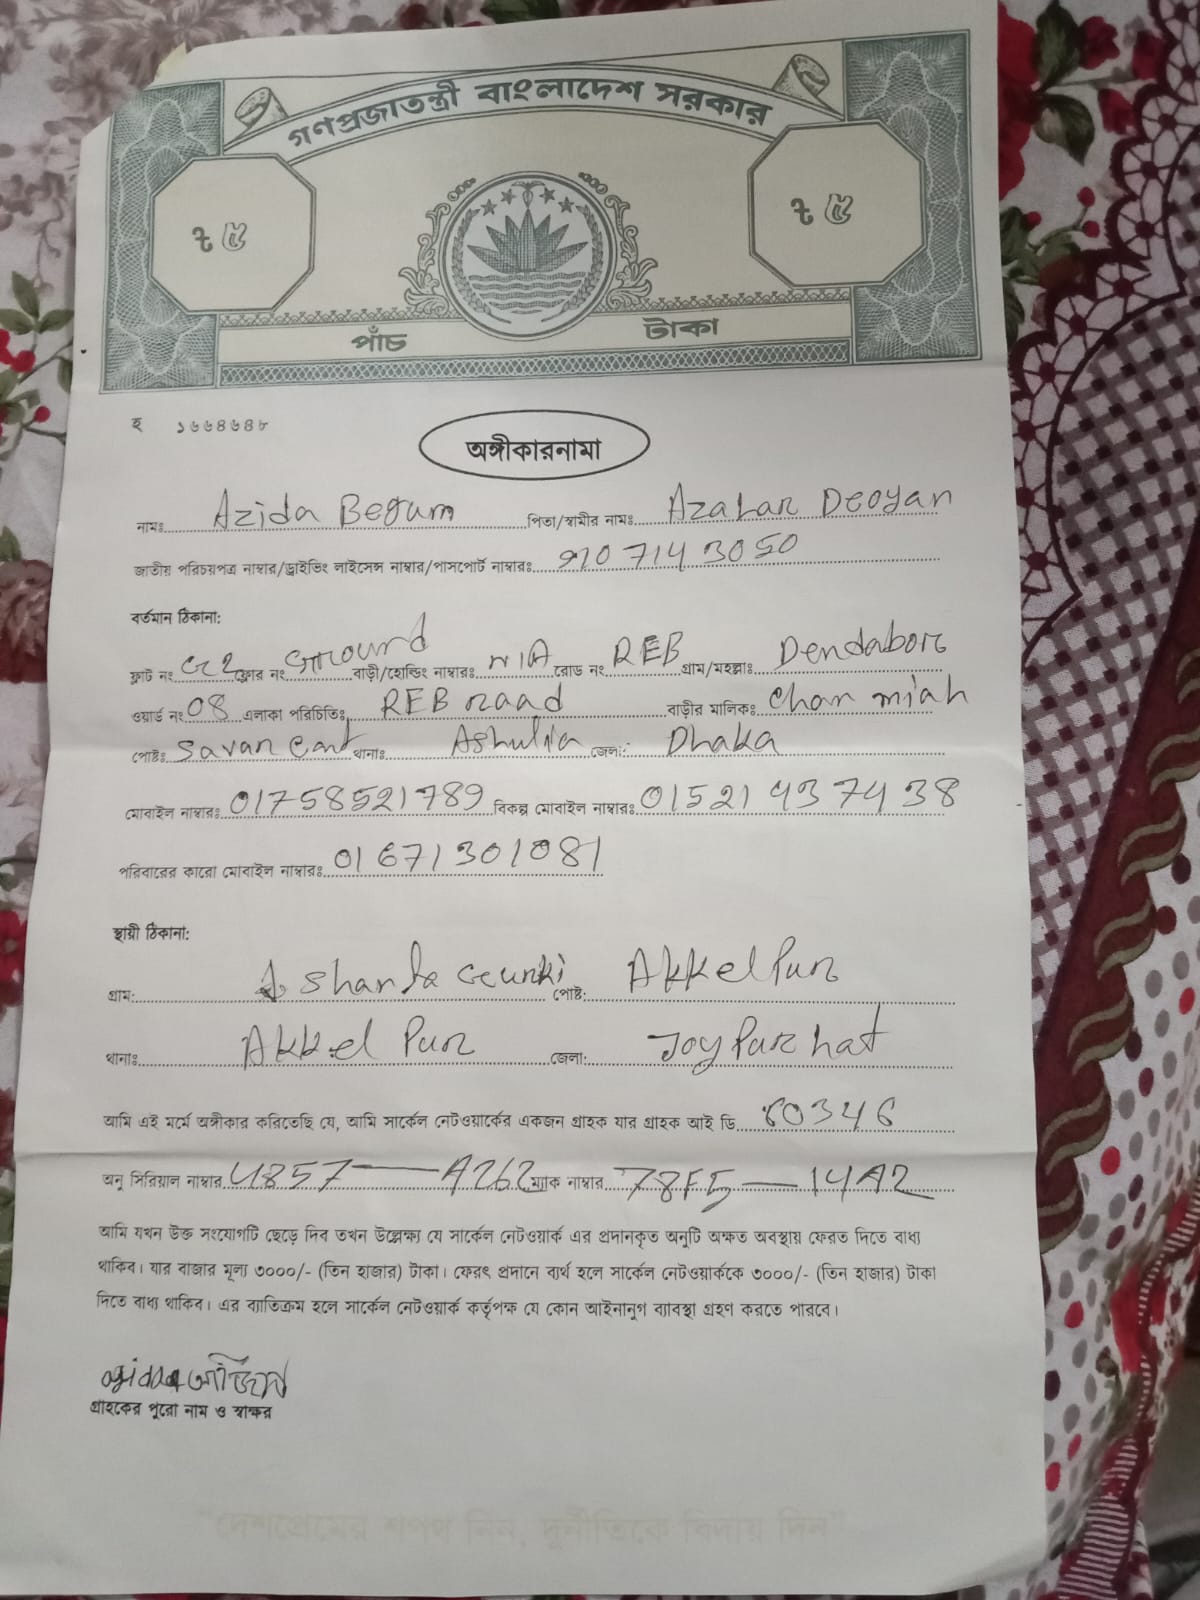 গণপ্রজাতন্ত্রী বাংলাদেশ সরকার
৳ ৫ ৳ ৫
পাঁচ টাকা
হ ১৬৬৪৬৪৮
অঙ্গীকারনামা
নামঃ Azida Begum পিতা/স্বামীর নামঃ Azahar Deoyan
জাতীয় পরিচয়পত্র নাম্বার/ড্রাইভিং লাইসেন্স নাম্বার/পাসপোর্ট নাম্বারঃ 9107143050
বর্তমান ঠিকানা:
ফ্লাট নং G2 ফ্লোর নং Ground বাড়ী/হোল্ডিং নাম্বারঃ N/A রোড নং REB গ্রাম/মহল্লাঃ Dendabor
ওয়ার্ড নং 08 এলাকা পরিচিতিঃ REB road বাড়ীর মালিকঃ Chan miah
পোষ্টঃ Savar Cant থানাঃ Ashulia জেলাঃ Dhaka
মোবাইল নাম্বারঃ 01758521789 বিকল্প মোবাইল নাম্বারঃ 01521437438
পরিবারের কারো মোবাইল নাম্বারঃ 01671301081
স্থায়ী ঠিকানা:
গ্রাম: পোষ্ট: Akkelpur
থানাঃ Akkelpur জেলা: Joypurhat
আমি এই মর্মে অঙ্গীকার করিতেছি যে, আমি সার্কেল নেটওয়ার্কের একজন গ্রাহক যার গ্রাহক আই ডি 60346
অনু সিরিয়াল নাম্বার 4857 — A262 ম্যাক নাম্বার 78F5 — 14A2
আমি যখন উক্ত সংযোগটি ছেড়ে দিব তখন উল্লেক্ষ্য যে সার্কেল নেটওয়ার্ক এর প্রদানকৃত অনুটি অক্ষত অবস্থায় ফেরত দিতে বাধ্য
থাকিব। যার বাজার মূল্য ৩০০০/- (তিন হাজার) টাকা। ফেরৎ প্রদানে ব্যর্থ হলে সার্কেল নেটওয়ার্ককে ৩০০০/- (তিন হাজার) টাকা
দিতে বাধ্য থাকিব। এর ব্যাতিক্রম হলে সার্কেল নেটওয়ার্ক কর্তৃপক্ষ যে কোন আইনানুগ ব্যাবস্থা গ্রহণ করতে পারবে।
গ্রাহকের পুরো নাম ও স্বাক্ষর
"দেশপ্রেমের শপথ নিন, দুর্নীতিকে বিদায় দিন"